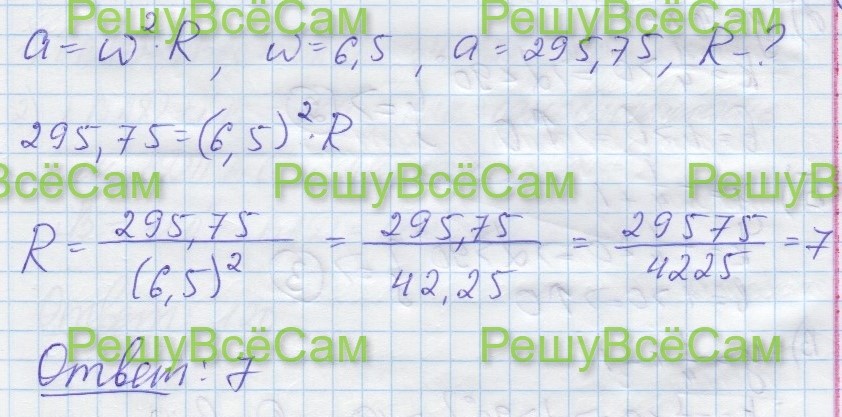 РешуВсёСам РешуВсёСам
a = w²·R, w = 6,5, a = 295,75, R - ?
295,75 = (6,5)²·R
РешуВсёСам РешуВсёСам РешуВсёСам
R = 295,75 / (6,5)² = 295,75 / 42,25 = 29575 / 4225 = 7
РешуВсёСам РешуВсёСам
Ответ: 7